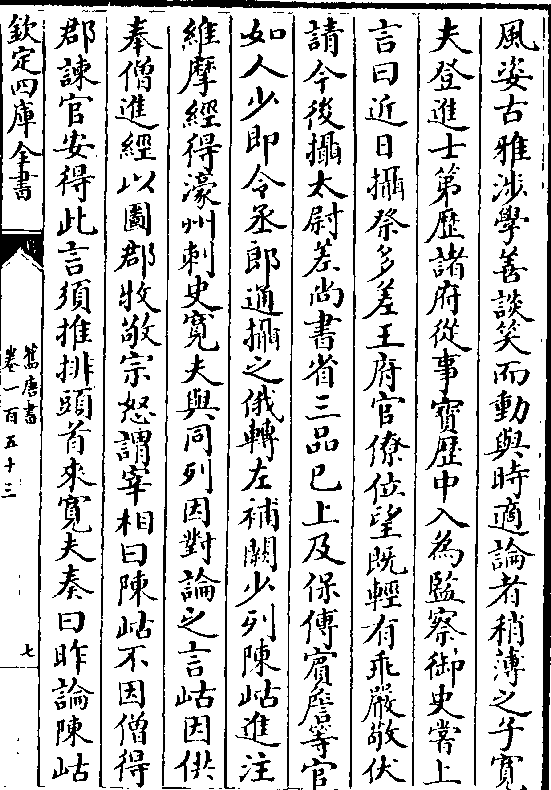 風姿古雅涉學善談笑而動與時適論者稍薄之子寛
夫登進士第歷諸府從事寶歷中入為監察御史嘗上
言曰近日攝祭多差王府官僚位望既輕有乖嚴敬伏
請今後攝太尉差尚書省三品已上及保傅賓詹等官
如人少即令丞郎通攝之俄轉左補闕少列陳岵進注
維摩經得濠州刺史寛夫與同列因對論之言岵因供
奉僧進經以圖郡牧敬宗怒謂宰相曰陳岵不因僧得
郡諫官安得此言須推排頭首來寛夫奏曰昨論陳岵
欽定四庫全書
舊唐書
卷一百五十三
七